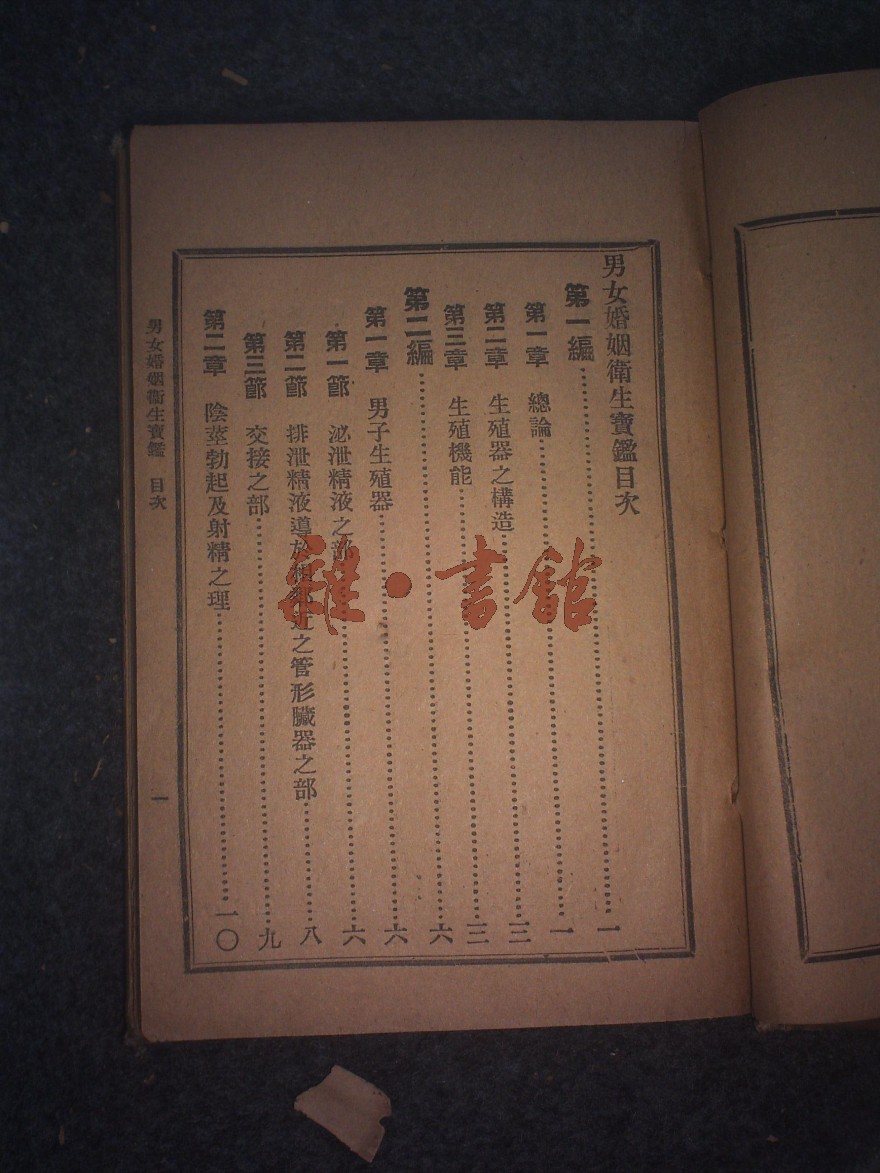 男女婚姻衛生寶鑑目次
第一編……一
第一章 總論……一
第二章 生殖器之構造……三
第三章 生殖機能……三
第二編……六
第一章 男子生殖器……六
第一節 泌泄精液之部……六
第二節 排泄精液導於之管形臟器之部……八
第三節 交接之部……九
第二章 陰莖勃起及射精之理……一〇
男女婚姻衛生寶鑑 目次
一
雜·書館